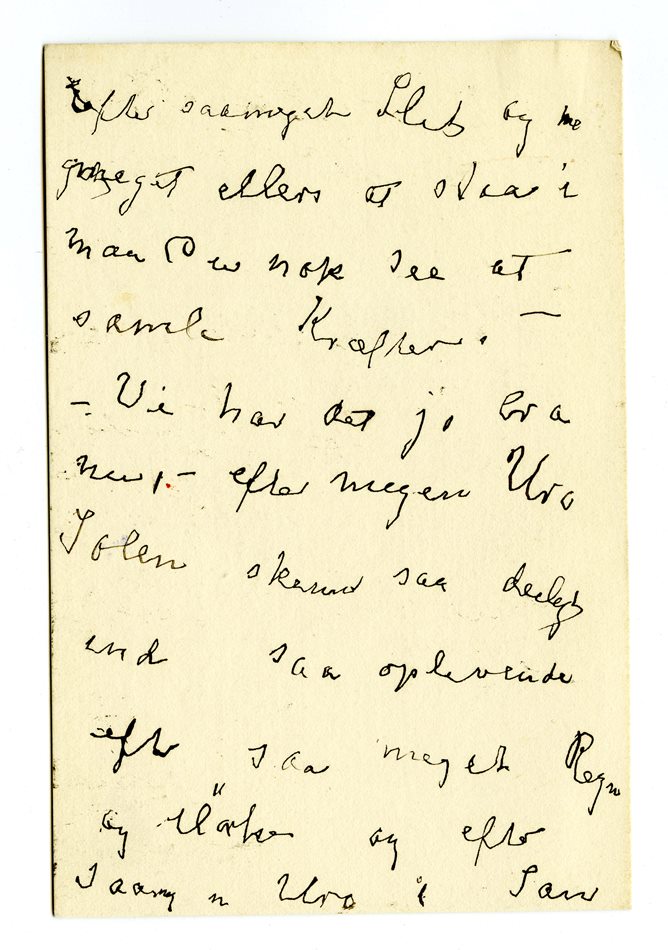 efter saameget Slit og me
meget ellers at staa i
maa Du nok see at
samle Kræfter. –
– Vi har det jo bra
nu, – efter megen Uro
Solen skinner saa deilig
ind saa oplevende
efter saa meget Regn
og Mörke og efter
saamegen Uro i San